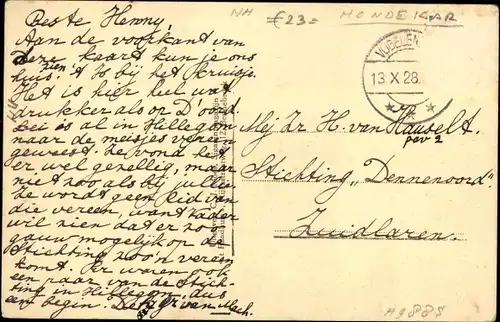 NH
€ 23=
HONDEKAR
Beste Henny,
Aan de voorkant van
deze kaart kun je ons
huis zien. 't Is bij het kruisje.
Het is hier heel wat
drukker als op D'oord.
al in Hillegom
naar de meisjes vereen.
geweest. Ze vond het
er wel gezellig, maar
niet zoo als bij jullie.
Ze wordt geen lid van
die vereen, want Vader
wil zien dat er zoo
gauw mogelijk op de
Stichting zoo'n vereen
komt. Er waren ook
een paar van de Stich-
ting in Hillegom, dus
een begin. Dag
13 X 28.
Mej Zr H. van Hauselt.
pav 2
Stichting „Dennenoord"
Zuidlaren.